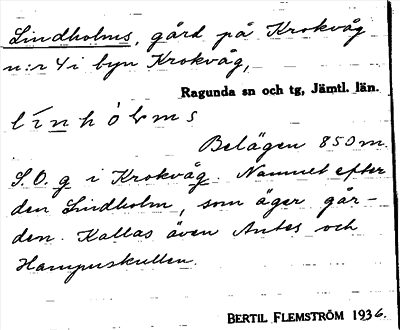 Lindholms, gård på Krokvåg
n:r 4 i byn Krokvåg,
Ragunda sn och tg, Jämtl. län.
línhòlms
Belägen 850 m.
S.O. g i Krokvåg. Namnet efter
den Lindholm, som äger går-
den. Kallas även Antes och
Hampuskullen.
BERTIL FLEMSTRÖM 1936.